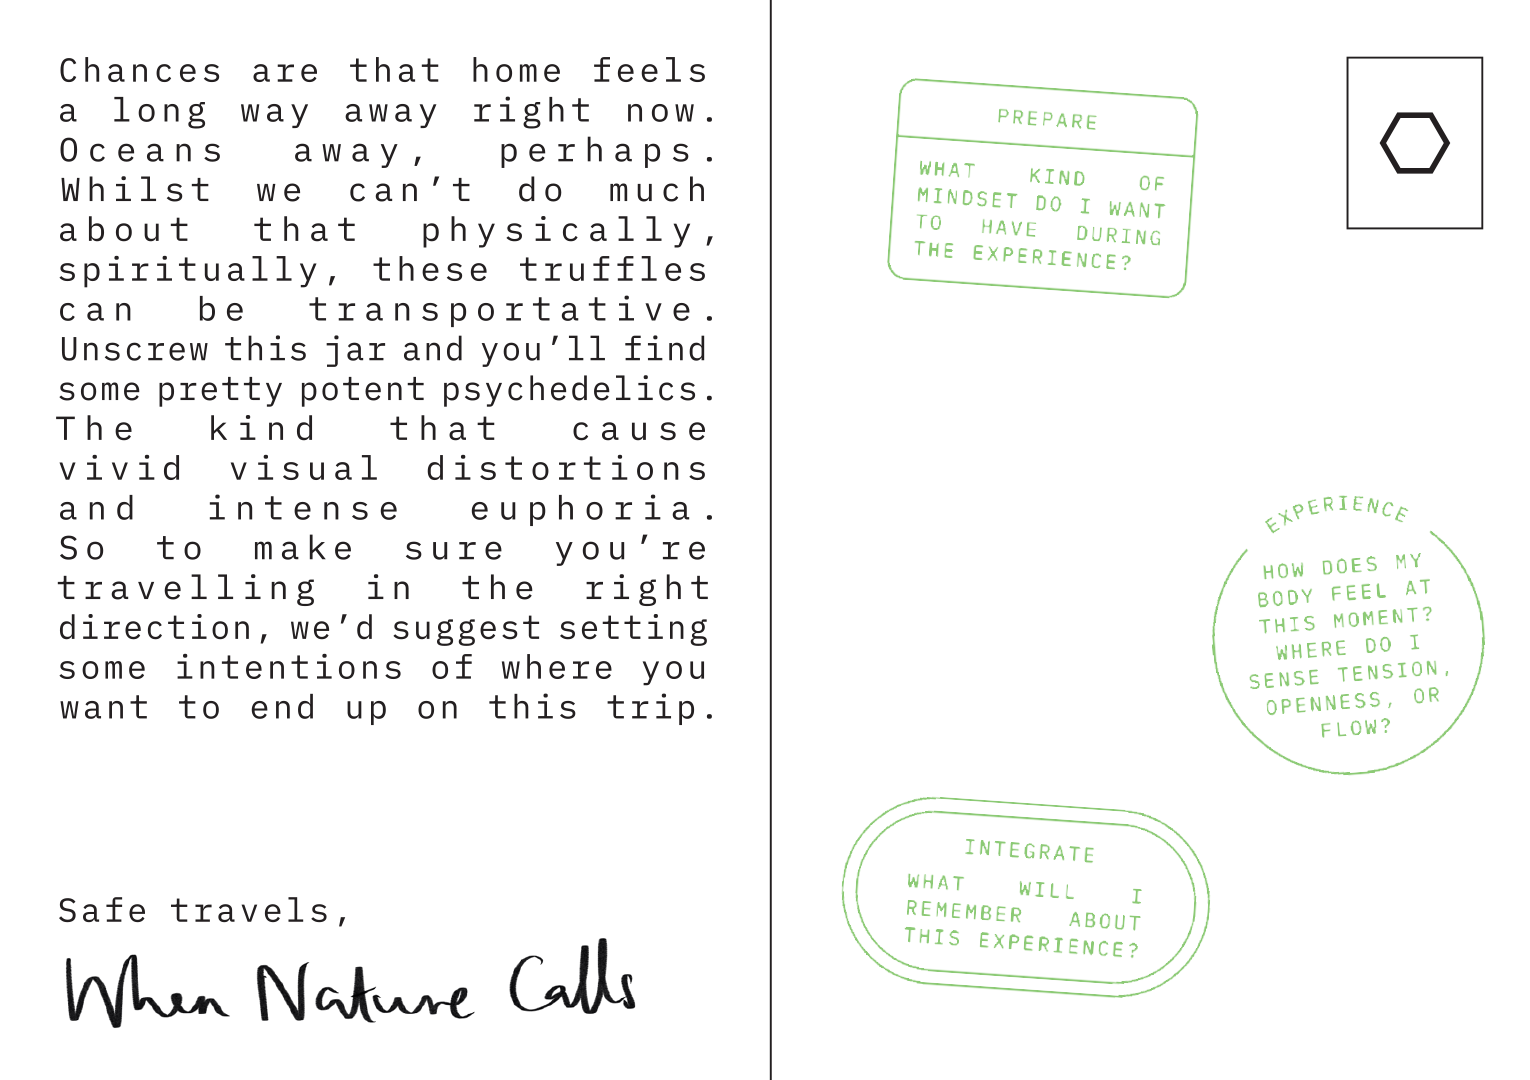 Chances are that home feels
a long way away right now.
Oceans away, perhaps.
Whilst we can’t do much
about that physically,
spiritually, these truffles
can be transportative.
Unscrew this jar and you’ll find
some pretty potent psychedelics.
The kind that cause
vivid visual distortions
and intense euphoria.
So to make sure you’re
travelling in the right
direction, we’d suggest setting
some intentions of where you
want to end up on this trip.
Safe travels,
When Nature Calls
PREPARE
WHAT KIND OF
MINDSET DO I WANT
TO HAVE DURING
THE EXPERIENCE?
EXPERIENCE
HOW DOES MY
BODY FEEL AT
THIS MOMENT?
WHERE DO I
SENSE TENSION,
OPENNESS, OR
FLOW?
INTEGRATE
WHAT WILL I
REMEMBER ABOUT
THIS EXPERIENCE?